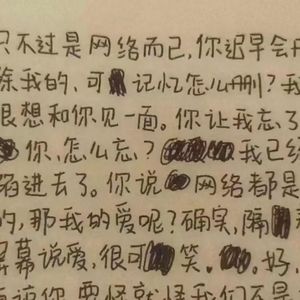 只不过是网络而已,你迟早会
除我的,可记忆怎么删?我
很想和你见一面。你让我忘了
你,怎么忘?我已经
陷进去了。你说网络都是
的,那我的爱呢?确实,隔
屏幕说爱,很可笑。好,